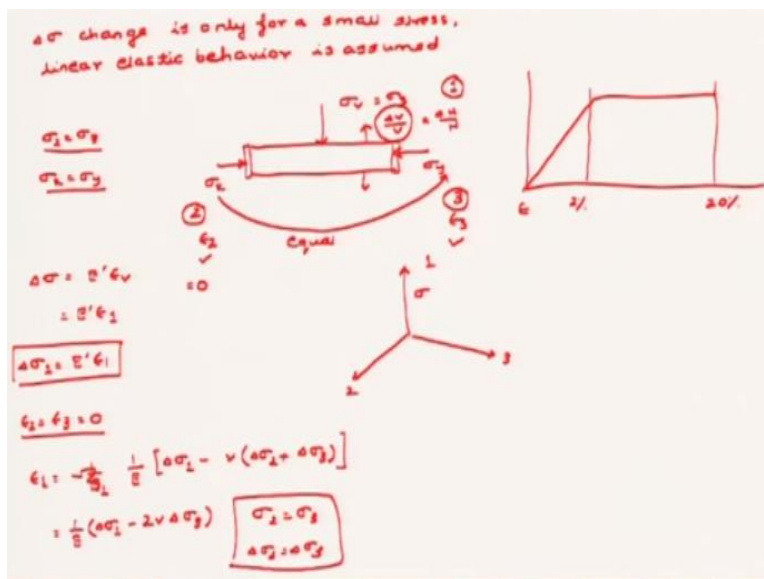 Δσ change is only for a small stress,
linear elastic behavior is assumed
σ₁ = σ₃
σₓ = σᵧ
σᵥ = σ₃ ①
ΔV/V = ΔH/H
σₓ
σᵧ
② ③
ε₂ ε₃
✓ ✓
equal
= 0
ε 2% 20%
Δσ = E'εᵥ
= E'ε₁
Δσ₁ = E'ε₁
ε₂ = ε₃ = 0
1
σ
2
3
ε₁ = 1/E [Δσ₁ - ν(Δσ₂ + Δσ₃)]
= 1/E (Δσ₁ - 2νΔσ₃)
σ₂ = σ₃
Δσ₂ = Δσ₃